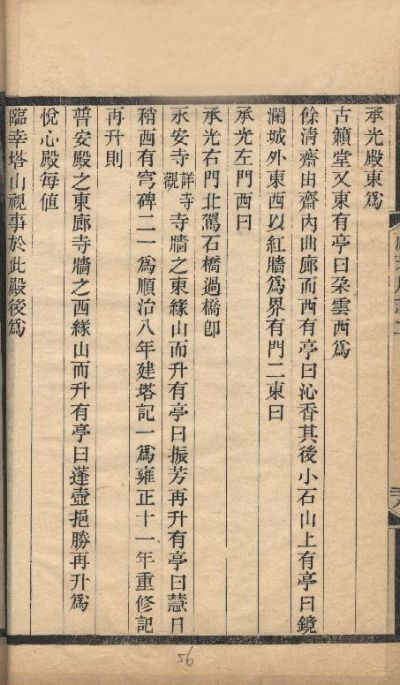 承光殿東爲
古籟堂又東有亭曰朶雲西爲
餘清齋由齋內曲廊而西有亭曰沁香其後小石山上有亭曰鏡
瀾城外東西以紅牆爲界有門二東曰
承光左門西曰
承光右門北駕石橋過橋卽
永安寺詳寺觀寺牆之東緣山而升有亭曰振芳再升有亭曰慧日
稍西有穹碑二一爲順治八年建塔記一爲雍正十一年重修記
再升則
普安殿之東廊寺牆之西緣山而升有亭曰蓬壺挹勝再升爲
悅心殿每値
臨幸塔山視事於此殿後爲
56